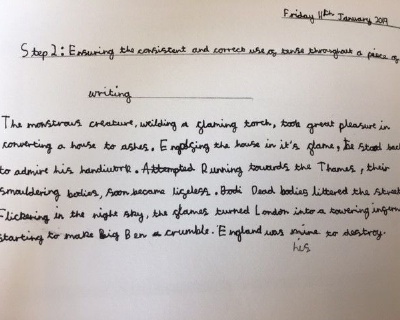 Friday 11th January 2019
Step 2: Ensuring the consistent and correct use of tense throughout a piece of
writing
The monstrous creature, weilding a flaming torch, took great pleasure in
converting a house to ashes. Engolfing the house in it's flame, he stood back
to admire his handiwork. Attempted Running towards the Thames, their
smouldering bodies, soon became lifeless. Bodi Dead bodies littered the street
Flickering in the night sky, the flames turned London into a towering inferno
starting to make Big Ben a crumble. England was mine to destroy.
his